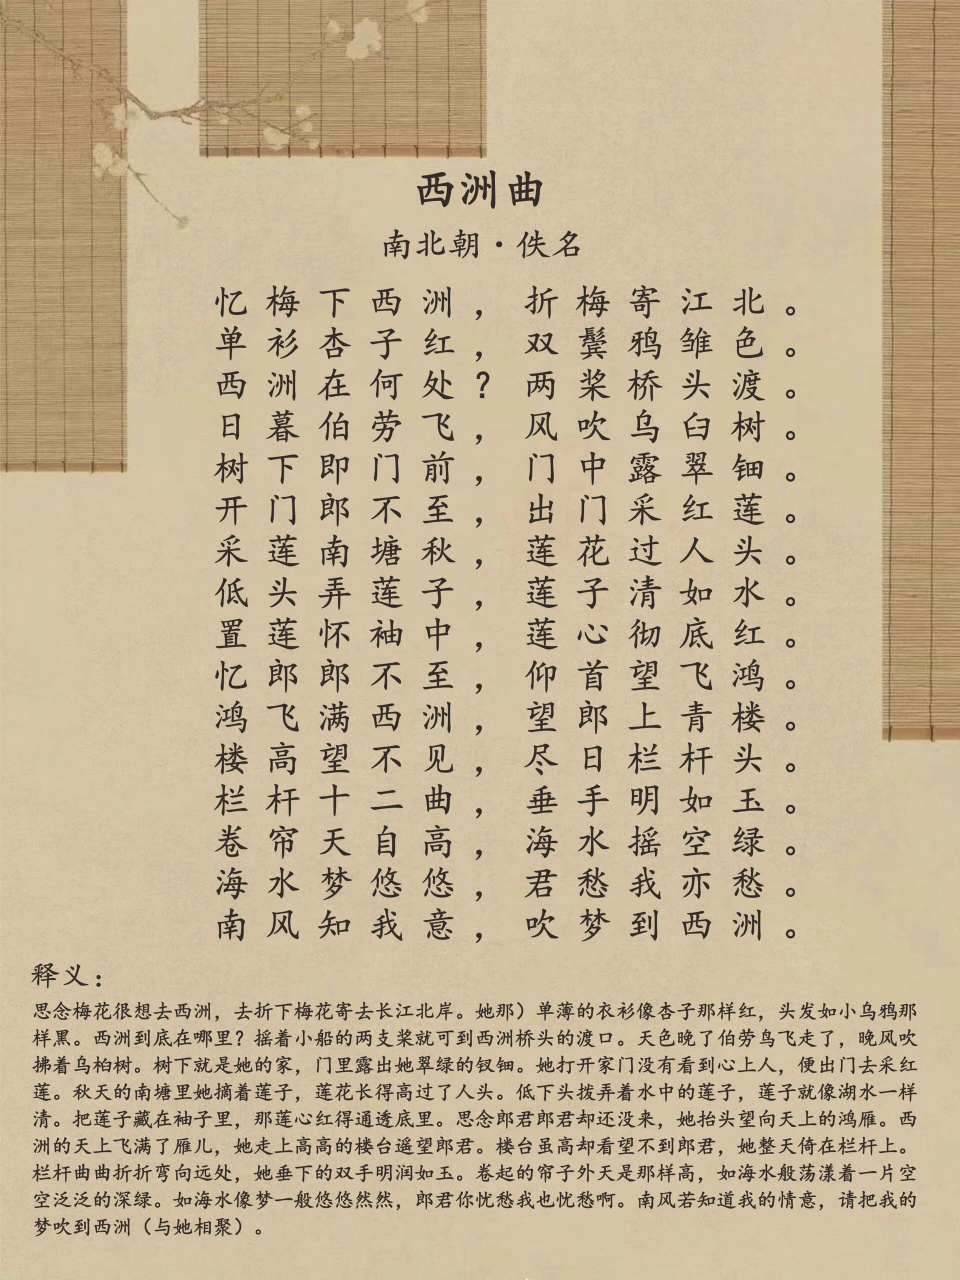 西洲曲
南北朝·佚名
忆梅下西洲，折梅寄江北。
单衫杏子红，双鬓鸦雏色。
西洲在何处？两桨桥头渡。
日暮伯劳飞，风吹乌臼树。
树下即门前，门中露翠钿。
开门郎不至，出门采红莲。
采莲南塘秋，莲花过人头。
低头弄莲子，莲子清如水。
置莲怀袖中，莲心彻底红。
忆郎郎不至，仰首望飞鸿。
鸿飞满西洲，望郎上青楼。
楼高望不见，尽日栏杆头。
栏杆十二曲，垂手明如玉。
卷帘天自高，海水摇空绿。
海水梦悠悠，君愁我亦愁。
南风知我意，吹梦到西洲。
释义：
思念梅花很想去西洲，去折下梅花寄去长江北岸。她那）单薄的衣衫像杏子那样红，头发如小乌鸦那
样黑。西洲到底在哪里？摇着小船的两支桨就可到西洲桥头的渡口。天色晚了伯劳鸟飞走了，晚风吹
拂着乌桕树。树下就是她的家，门里露出她翠绿的钗钿。她打开家门没有看到心上人，便出门去采红
莲。秋天的南塘里她摘着莲子，莲花长得高过了人头。低下头拨弄着水中的莲子，莲子就像湖水一样
清。把莲子藏在袖子里，那莲心红得通透底里。思念郎君郎君却还没来，她抬头望向天上的鸿雁。西
洲的天上飞满了雁儿，她走上高高的楼台遥望郎君。楼台虽高却看望不到郎君，她整天倚在栏杆上。
栏杆曲曲折折弯向远处，她垂下的双手明润如玉。卷起的帘子外天是那样高，如海水般荡漾着一片空
空泛泛的深绿。如海水像梦一般悠悠然然，郎君你忧愁我也忧愁啊。南风若知道我的情意，请把我的
梦吹到西洲（与她相聚）。